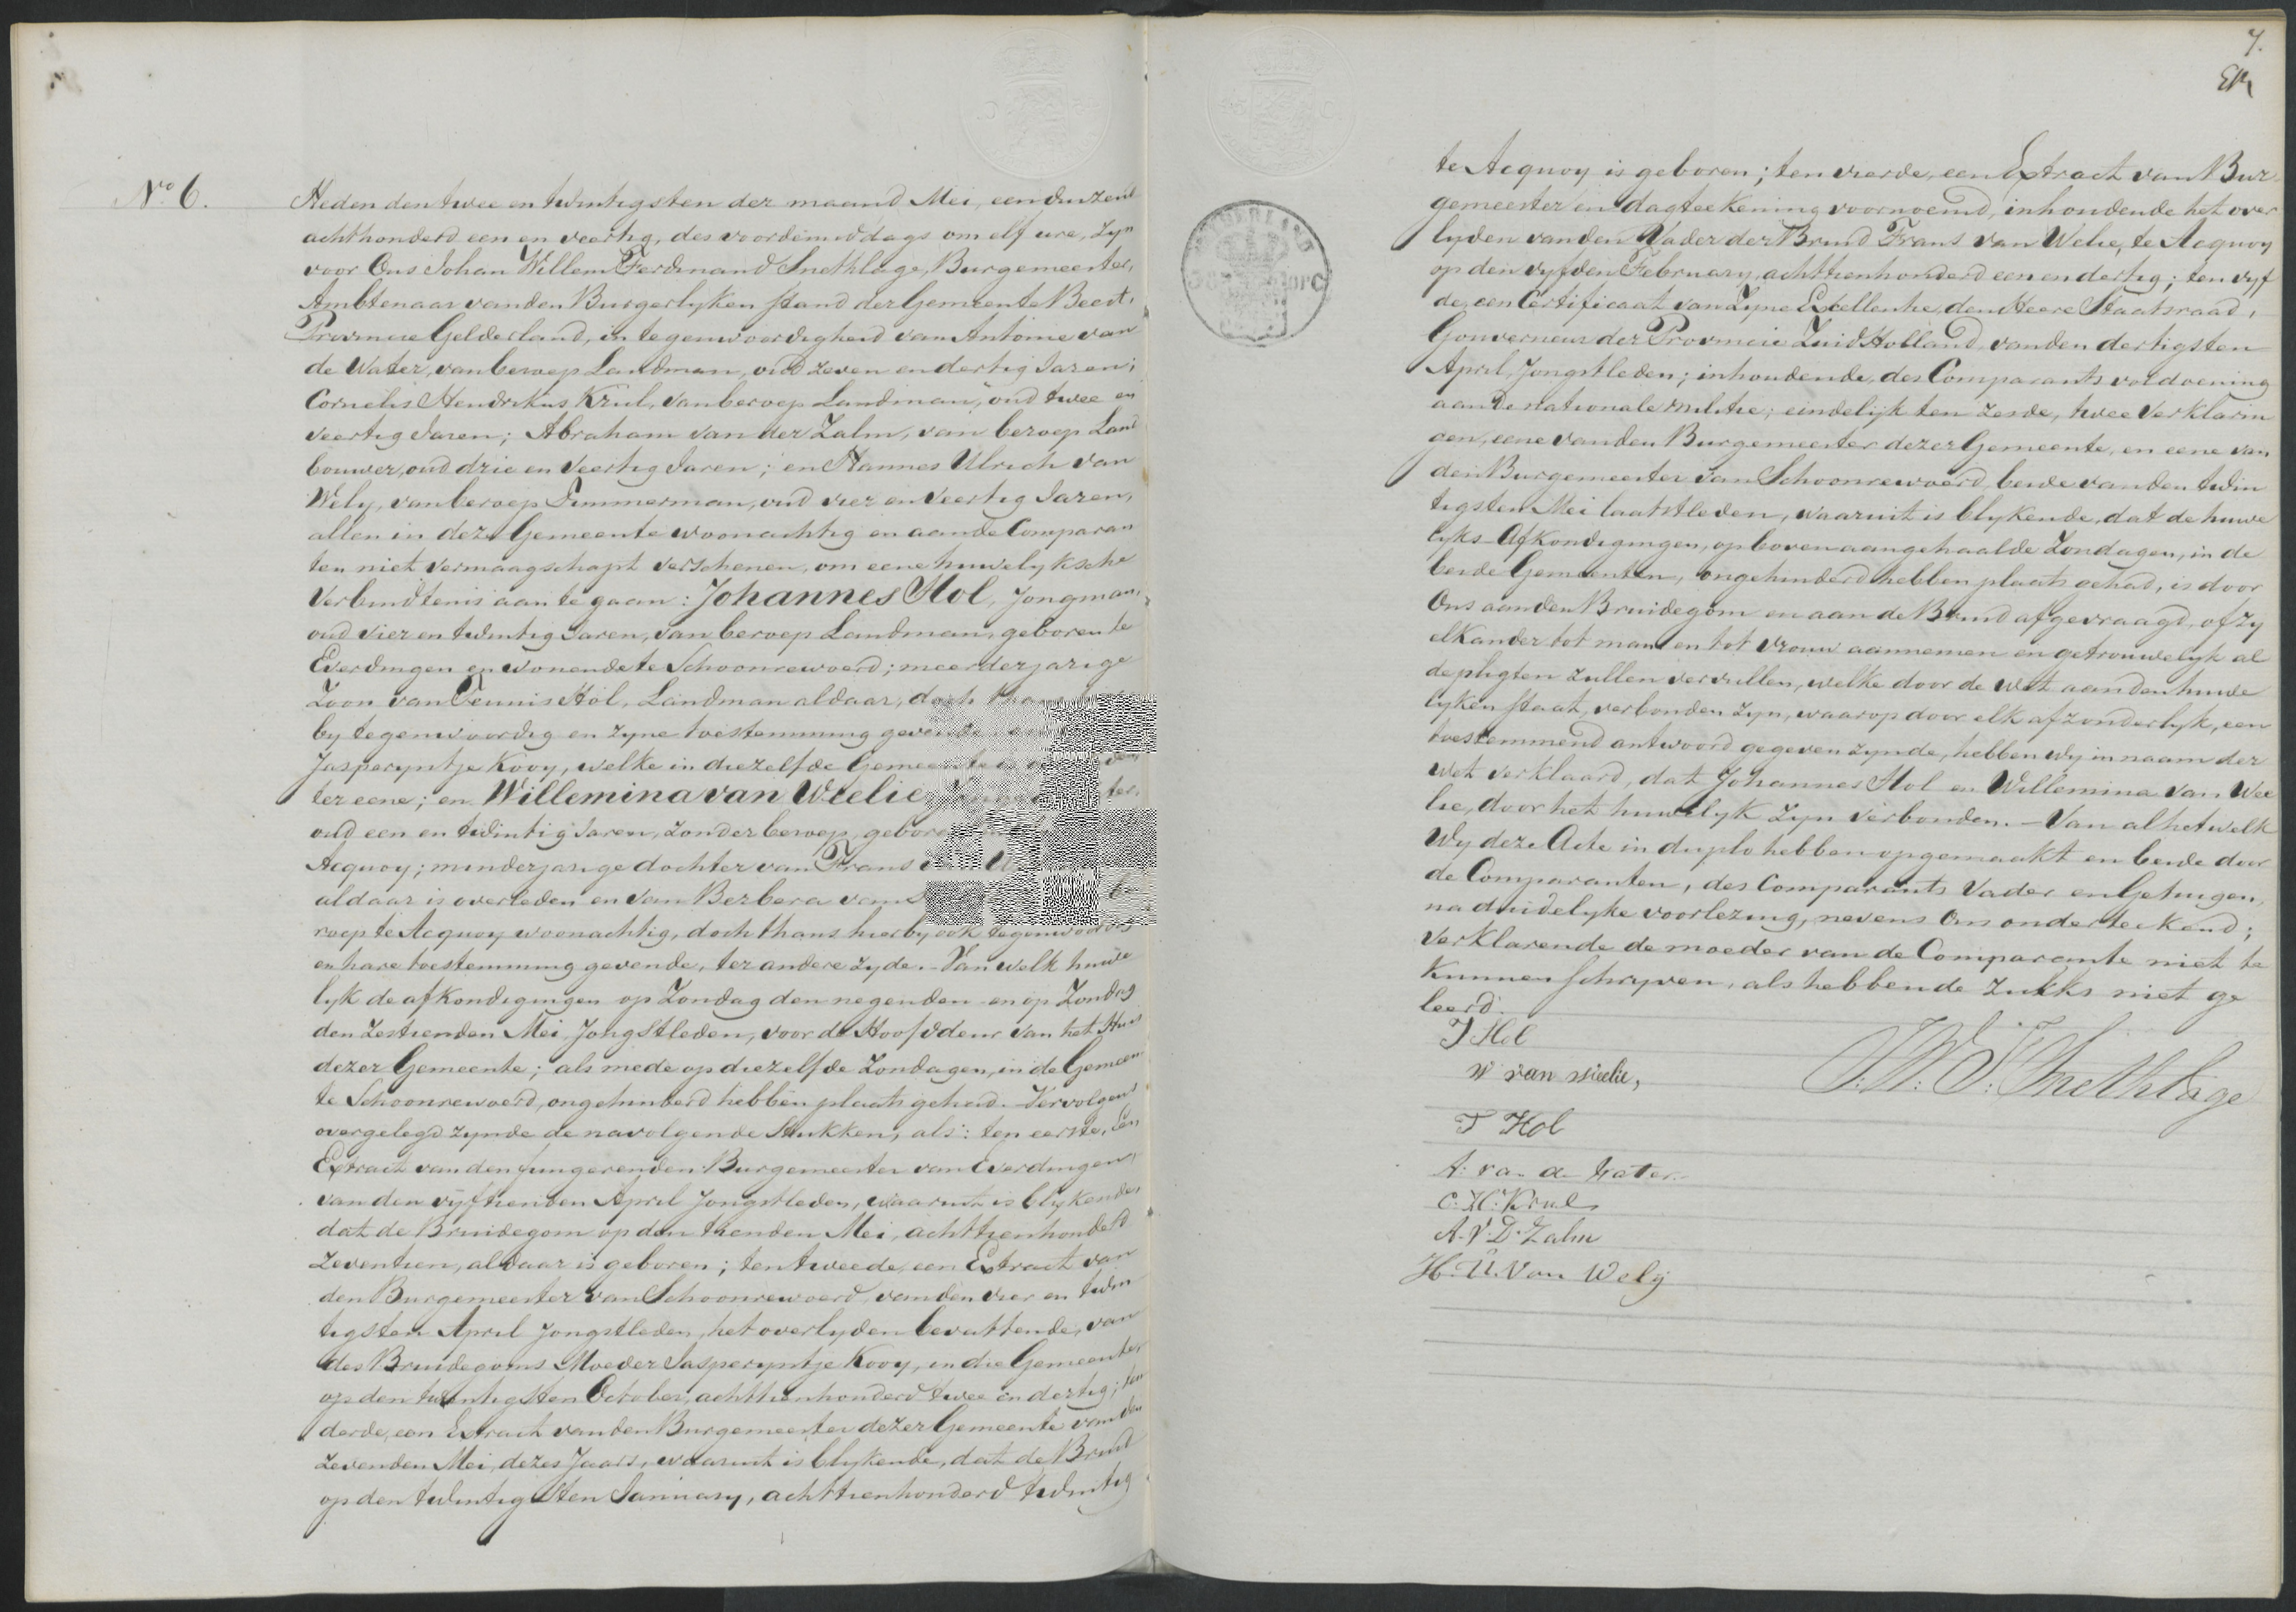 No. 6.
Heden den twee en twintigsten der maand Mei, een duizend
acht honderd een en veertig, des voordemiddags om elf ure, Zyn
voor Ons Johan Willem Ferdinand Snethlage, Burgemeester,
Ambtenaar van den Burgerlyken stand der Gemeente Beest,
Provincie Gelderland, in tegenwoordigheid van Antonie van
de Water, van beroep Landman, oud zeven en dertig Jaren;
Cornelis Hendrikus Krul, van beroep Landman, oud twee en
veertig Jaren; Abraham van der Zalm, van beroep Land
bouwer, oud drie en veertig Jaren; en Hannes Ulrich van
Wely, van beroep Timmerman, oud vier en veertig Jaren,
allen in deze Gemeente woonachtig en aan de Comparan
ten niet vermaagschapt verschenen, om eene huwelyksche
Verbindtenis aan te gaan: Johannes Hol, Jongman,
oud vier en twintig Jaren, van beroep Landman, geboren te
Everdingen en wonende te Schoonrewoerd; meerderjarige
Zoon van Teunis Hol, Landman aldaar, doch
by tegenwoordig en zyne toestemming gevende
Jasperyntje Kooy, welke in diezelfde Gemeente is
ter eene; en Willemina van Weelie,
oud een en twintig Jaren, zonder beroep, geboren
Acquoy; minderjarige dochter van Frans
aldaar is overleden en van Berbera van be
roep te Acquoy woonachtig, doch thans hierby ook tegenwoordig
en hare toestemming gevende, ter andere zyde. - Van welk huwe
lyk de afkondigingen op Zondag den negenden en op Zondag
den Zestienden Mei Jongstleden, voor de Hoofddeur van het Huis
dezer Gemeente; als mede op diezelfde Zondagen, in de Gemeen
te Schoonrewoerd, ongehinderd hebben plaats gehad. - Vervolgens
overgelegd zynde de navolgende Stukken, als: ten eerste, Een
Extract van den fungerenden Burgemeester van Everdingen,
van den vyftienden April Jongstleden, waaruit is blykende,
dat de Bruidegom op den tienden Mei, achttienhonderd
Zeventien, aldaar is geboren; ten tweede, een Extract van
den Burgemeester van Schoonrewoerd, van den vier en twin
tigsten April Jongstleden, het overlyden bevattende, van
des Bruidegoms Moeder Jasperyntje Kooy, in die Gemeente,
op den twintigsten October, achttienhonderd twee en dertig; ten
derde, een Extract van den Burgemeester dezer Gemeente van den
Zevenden Mei, dezes Jaars, waaruit is blykende, dat de Bruid
op den twintigsten January, achttienhonderd twintig
7.
te Acquoy is geboren; ten vierde, een Extract van Bur
gemeester en dagteekening voornoemd, inhoudende het over
lyden van den Vader der Bruid Frans van Welie, te Acquoy
op den vyfden February, achttienhonderd een en dertig; ten vyf
de, een Certificaat van Zyne Excellentie, den Heere Staatsraad,
Gouverneur der Provincie Zuid Holland, van den dertigsten
April, Jongstleden; inhoudende, des Comparants voldoening
aan de nationale militie; eindelijk ten zesde, twee Verklarin
gen, eene van den Burgemeester dezer Gemeente, en eene van
den Burgemeester van Schoonrewoerd, beide van den twin
tigsten Mei laatstleden, waaruit is blykende, dat de huwe
lyks-Afkondigingen, op bovenaangehaalde Zondagen, in de
beide Gemeenten, ongehinderd hebben plaats gehad, is door
Ons aan den Bruidegom en aan de Bruid afgevraagd, of zy
elkander tot man en tot vrouw aannemen en getrouwelyk al
de pligten zullen vervullen, welke door de wet aan den huwe
lyken staat, verbonden zyn, waarop door elk afzonderlyk, een
toestemmend antwoord gegeven zynde, hebben wy in naam der
wet verklaard, dat Johannes Hol en Willemina van Wee
lie, door het huwelyk zyn verbonden. - Van al hetwelk
Wy deze Acte in duplo hebben opgemaakt en beide door
de Comparanten, des Comparants Vader en Getuigen,
na duidelyke voorlezing, nevens Ons onderteekend;
Verklarende de moeder van de Comparante niet te
Kunnen schryven, als hebbende zulks niet ge
leerd.
J Hol
W van weelie,
J. W. F. Snethlage
T Hol
A. van de Water
C. H. Krul
A. V. D. Zalm
H. U. Van Welij